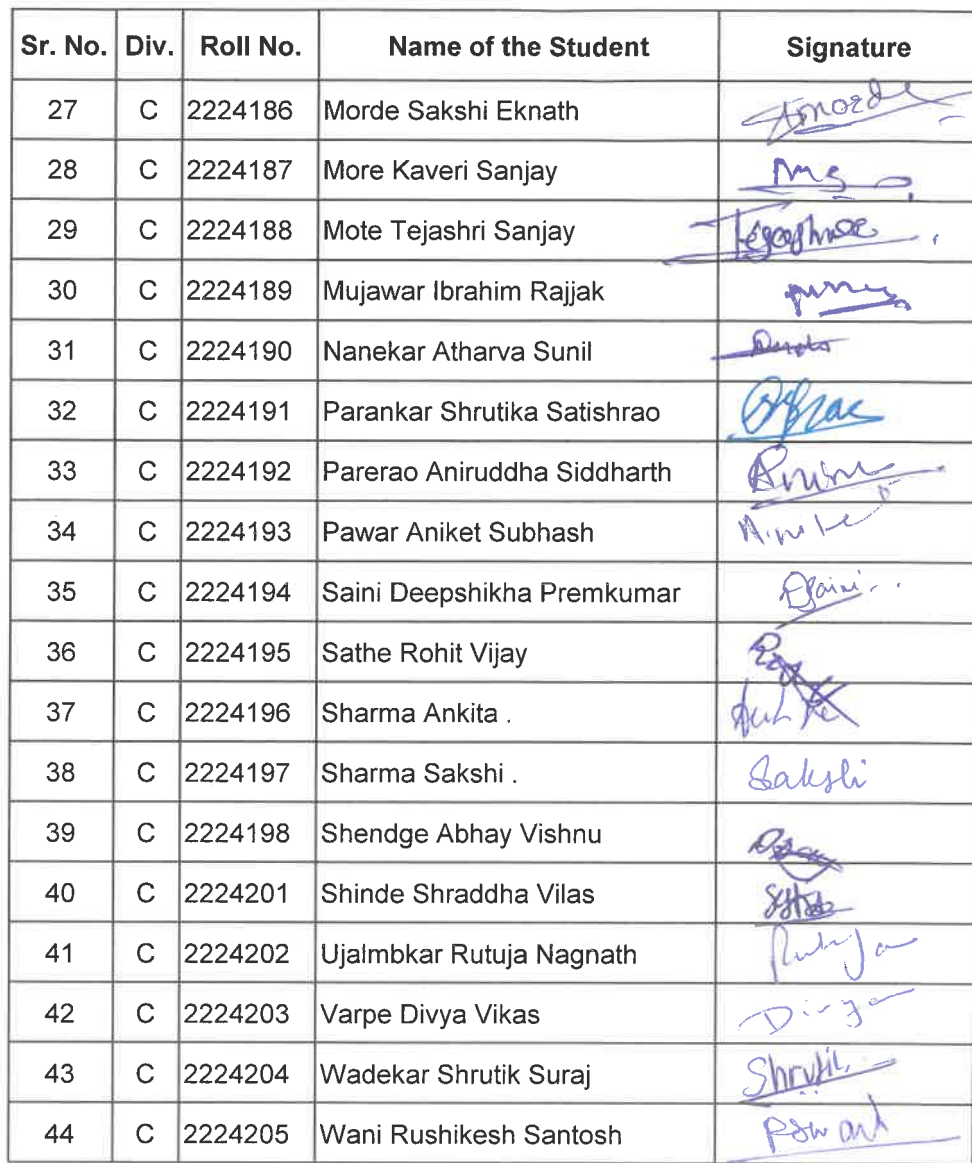 Sr. No. Div. Roll No. Name of the Student Signature
27 C 2224186 Morde Sakshi Eknath
28 C 2224187 More Kaveri Sanjay
29 C 2224188 Mote Tejashri Sanjay
30 C 2224189 Mujawar Ibrahim Rajjak
31 C 2224190 Nanekar Atharva Sunil
32 C 2224191 Parankar Shrutika Satishrao
33 C 2224192 Parerao Aniruddha Siddharth
34 C 2224193 Pawar Aniket Subhash
35 C 2224194 Saini Deepshikha Premkumar
36 C 2224195 Sathe Rohit Vijay
37 C 2224196 Sharma Ankita .
38 C 2224197 Sharma Sakshi . Sakshi
39 C 2224198 Shendge Abhay Vishnu
40 C 2224201 Shinde Shraddha Vilas
41 C 2224202 Ujalmbkar Rutuja Nagnath
42 C 2224203 Varpe Divya Vikas Divya
43 C 2224204 Wadekar Shrutik Suraj Shrutik
44 C 2224205 Wani Rushikesh Santosh